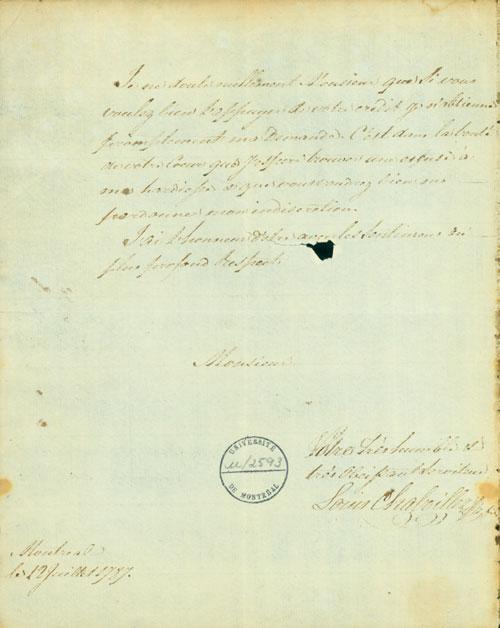 Je ne doute nullement Monsieur que si vous
voulez bien l'appuyer de votre crédit je n'obtienne
promptement ma Demande. C'est dans la bonté
de votre Coeur que j'espère trouver une excuse à
ma hardiesse et que vous voudrez bien me
pardonner mon indiscretion.
J'ai l'honneur d'être avec les sentimens du
plus profond Respect.
Monsieur
Votre très humble et
très Obeissant Serviteur
Louis Chaboillez
UNIVERSITÉ
u/2593
DE MONTRÉAL
Montreal
le 12 Juillet 1787.